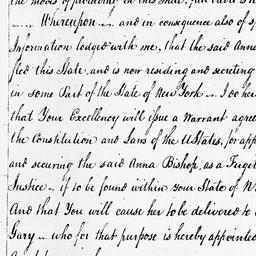 the modes of proceeding in this State, for
Whereupon and in consequence also of sp
Information lodged with me, that the said Anna
fled this State, and is now residing and secreting
in some Part of the State of New York I do here
that Your Excellency will issue a Warrant agree
the Constitution and Laws of the U States, for app
and securing the said Anna Bishop, as a Fugit
Justice if to be found within your State of N
And that You will cause her to be delivered to
Gary who for that purpose is hereby appointed